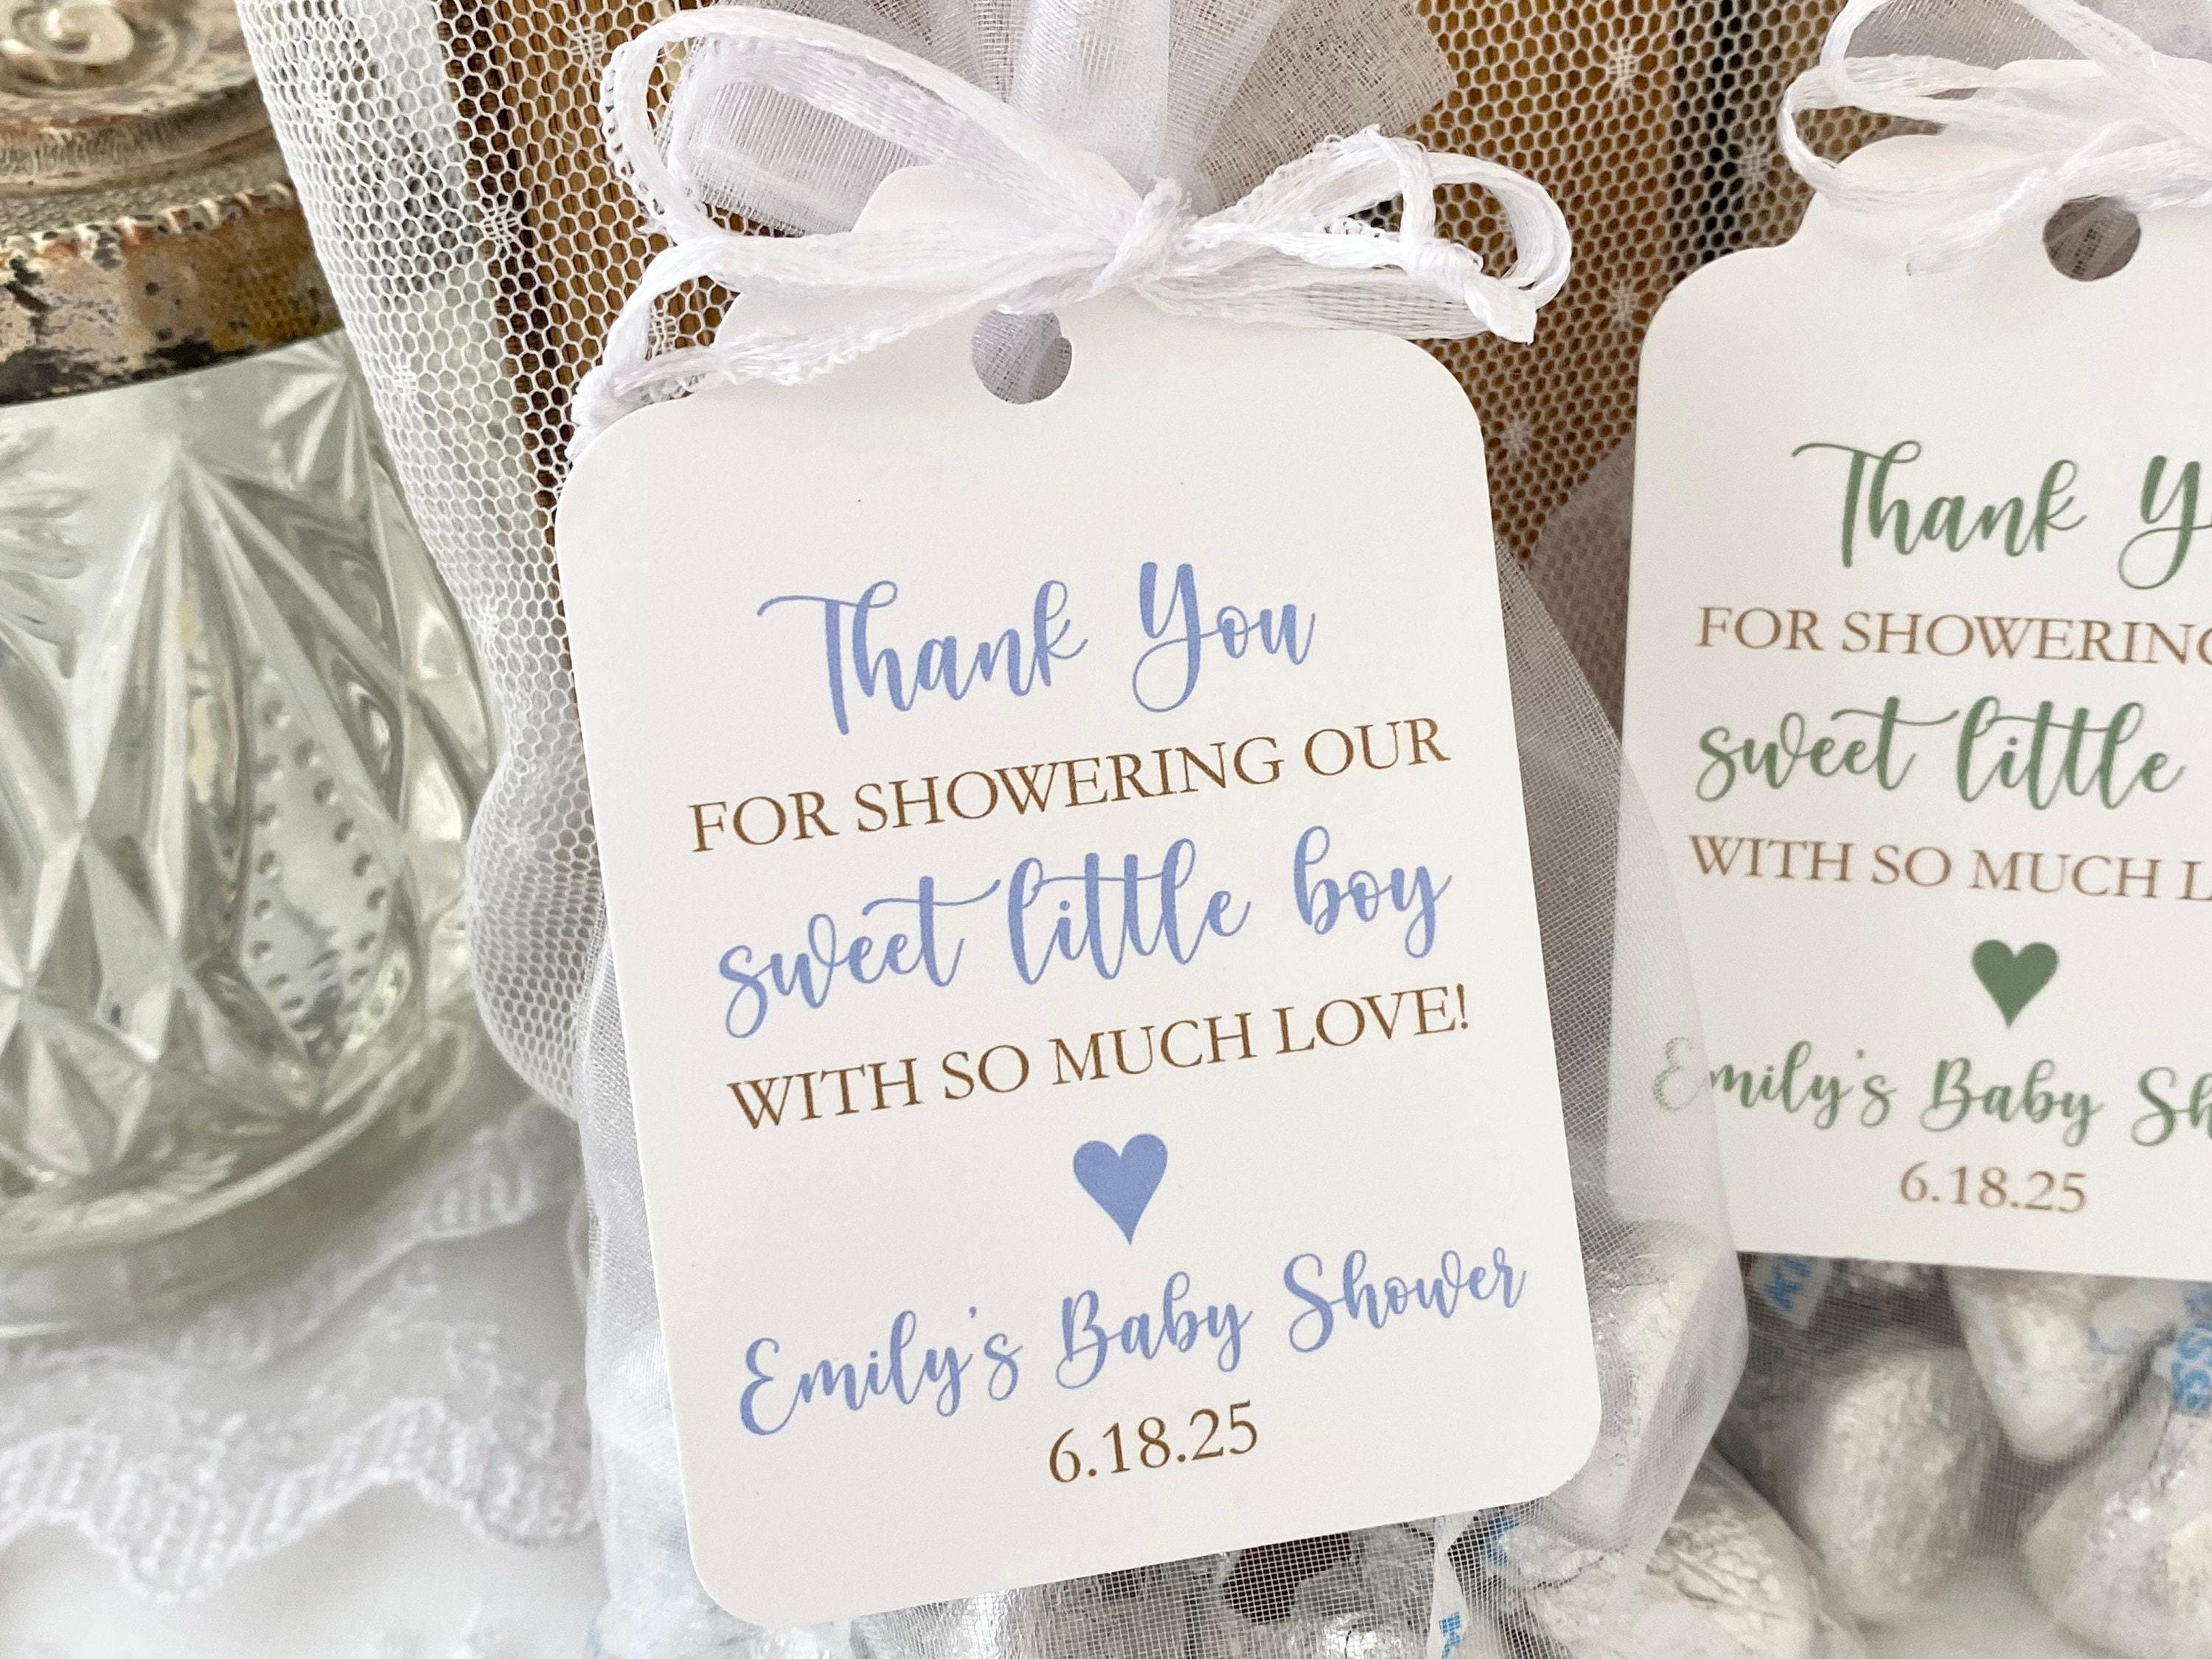 Thank You
FOR SHOWERING OUR
sweet little boy
WITH SO MUCH LOVE!
Emily's Baby Shower
6.18.25
Thank
FOR SHOWERING
sweet little
WITH SO MUCH
Emily's Baby
6.18.25